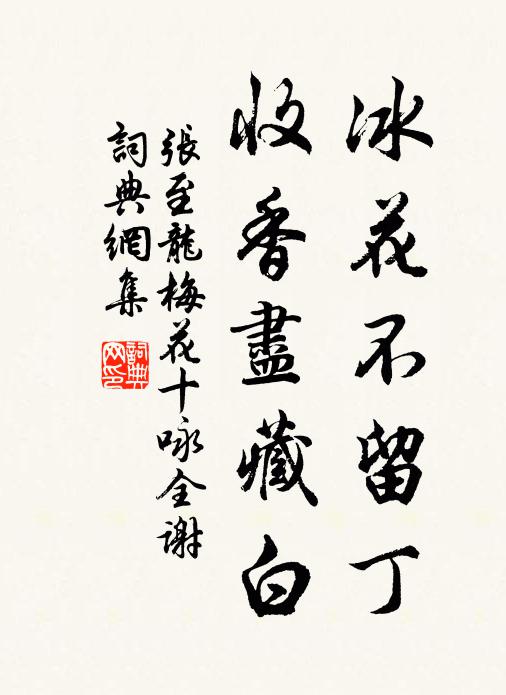 冰花不留丁
收香盡藏白
張至龍梅花十咏全謝
詞典網集
詞典網印